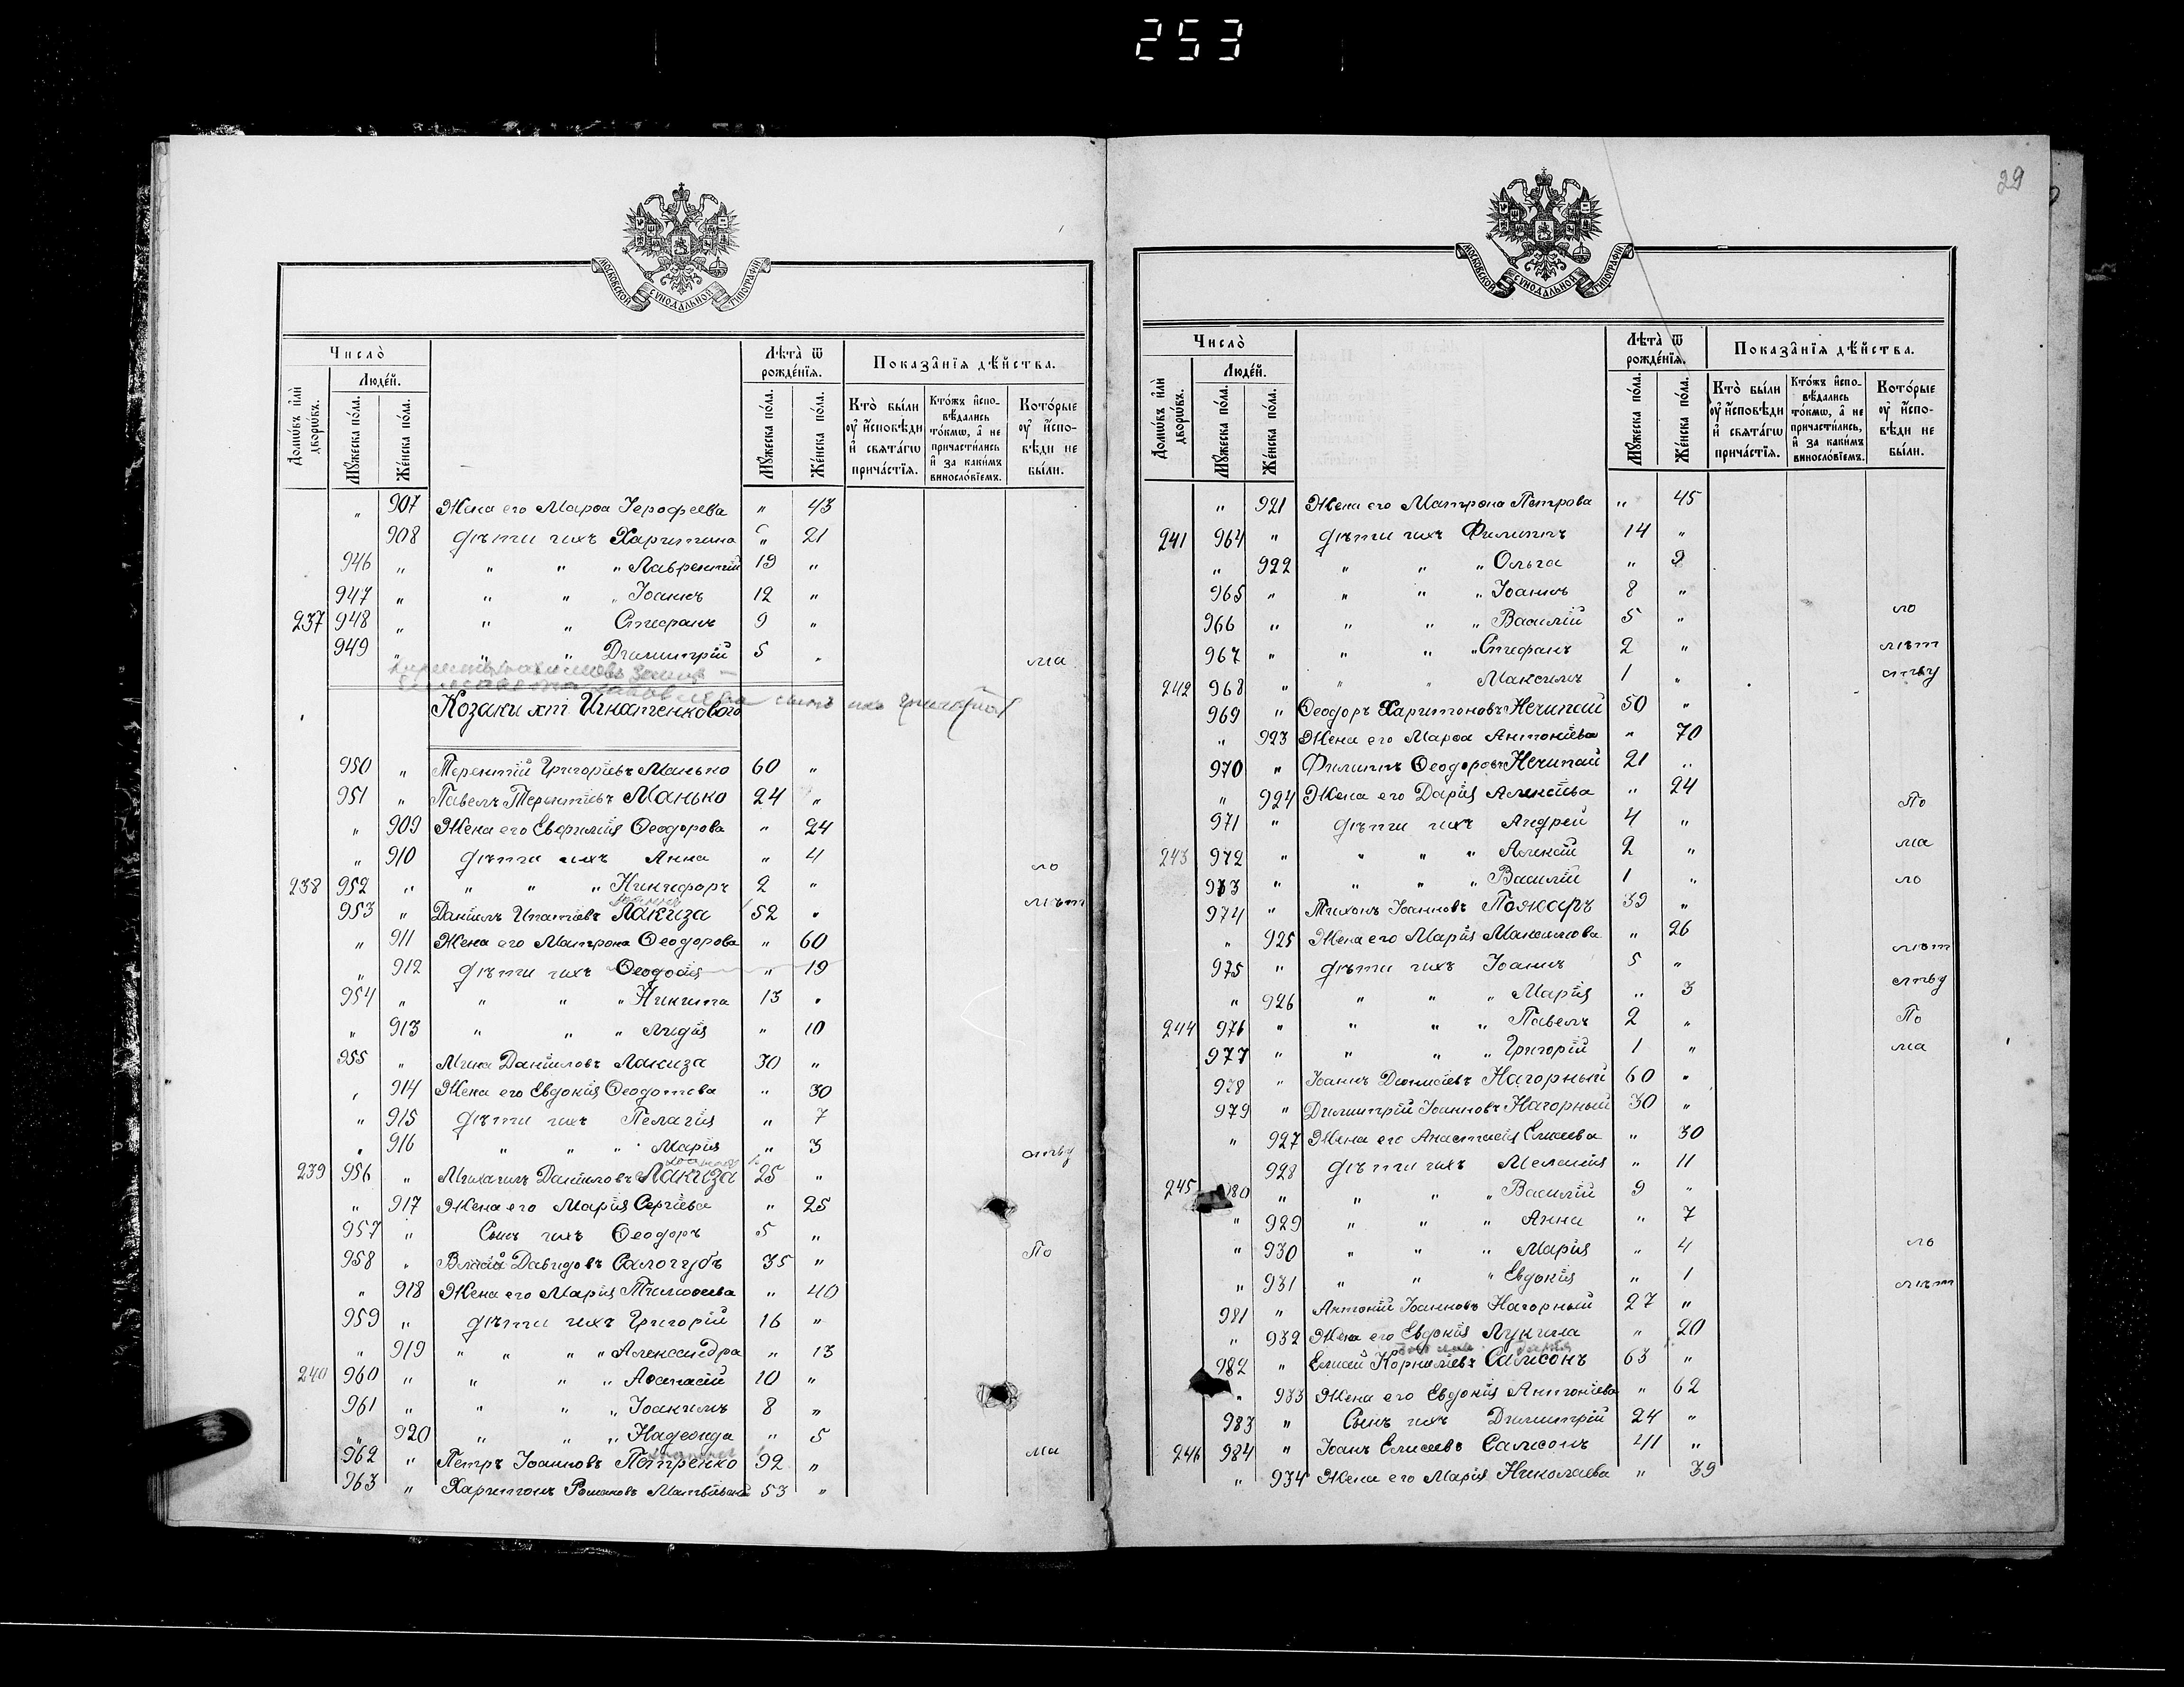 253
29
МОСКОВСКОЙ СѴНОДАЛЬНОЙ ТИПОГРАФІИ
Число̀
Людей.
Домѡвъ или дворѡвъ.
Мꙋжеска пола.
Женска пола.
Лѣта ѿ рожденїѧ.
Мꙋжеска пола.
Женска пола.
Показанїѧ дѣйства.
Кто были оу исповѣди и свѧтагѡ причастїѧ.
Ктожъ исповѣдались токмѡ, а не причастились и за какимъ винословїемъ.
Которые оу исповѣди не были.
„ 907 Жена его Марѳа Іерофеева „ 43
908 дѣти ихъ Харитина „ 21
946 „ „ „ „ Лаврентій 19 „
947 „ „ „ „ Іоаннъ 12 „
237 948 „ „ „ Стефанъ 9 „
949 „ „ „ Димитрій 5 „ ма
Козаки хт Игнатенкового
950 „ Терентій Григоріевъ Манько 60 „
951 „ Павелъ Терентіевъ Манько 24 „
„ 909 Жена его Евфимія Ѳеодорова „ 24
„ 910 дѣти ихъ Анна „ 4 ло
238 952 „ „ „ „ Никифоръ 2 „
953 „ Даніилъ Ипатіевъ Лакиза 52 „ лѣт
„ 911 Жена его Матрона Ѳеодорова „ 60
„ 912 дѣти ихъ Ѳеодосія „ 19
954 „ „ „ „ Никита 13 „
„ 913 „ „ „ Лидія „ 10
955 „ Мина Даніиловъ Лакиза 30 „
„ 914 Жена его Евдокія Ѳеодотова „ 30
„ 915 дѣти ихъ Пелагія „ 7
„ 916 „ „ „ Марія „ 3 ству
239 956 „ Михаилъ Даніиловъ Лакиза 25 „
„ 917 Жена его Марія Сергіева „ 25
957 „ Сынъ ихъ Ѳеодоръ 5 „
958 „ Давидовъ Салогубъ 35 „ По
„ 918 Жена его Марія Тимоѳеева „ 40
959 „ дѣти ихъ Григорій 16 „
„ 919 „ „ „ „ Александра „ 13
240 960 „ „ „ „ Аѳанасій 10 „
961 „ „ „ „ Іоакимъ 8 „
„ 920 „ „ „ Надежда „ 5
962 „ Петръ Іоанновъ Петренко 92 „ ма
963 „ Харитонъ Романовъ 53 „
МОСКОВСКОЙ СѴНОДАЛЬНОЙ ТИПОГРАФІИ
Число̀
Людей.
Домѡвъ или дворѡвъ.
Мꙋжеска пола.
Женска пола.
Лѣта ѿ рожденїѧ.
Мꙋжеска пола.
Женска пола.
Показанїѧ дѣйства.
Кто были оу исповѣди и свѧтагѡ причастїѧ.
Ктожъ исповѣдались токмѡ, а не причастились, и за какимъ винословїемъ.
Которые оу исповѣди не были.
„ 921 Жена его Матрона Петрова „ 45
241 964 „ дѣти ихъ Филиппъ 14 „
„ 922 „ „ „ Ольга „ 9
965 „ „ „ „ Іоаннъ 8 „
966 „ „ „ „ Василій 5 „ ло
967 „ „ „ „ Стефанъ 2 „ лѣт
242 968 „ „ „ Максимъ 1 „ ству
969 „ Ѳеодоръ Харитоновъ Нечипай 50 „
„ 923 Жена его Марѳа Антоніева „ 70
970 „ Филиппъ Ѳеодоровъ Нечипай 21 „
„ 924 Жена его Дарія Алексіева „ 24 По
971 „ дѣти ихъ Андрей 4 „
243 972 „ „ „ „ Алексій 2 „ ма
973 „ „ „ „ Василій 1 „ ло
974 „ Тихонъ Іоанновъ Пожаръ 39 „
„ 925 Жена его Марія Максимова „ 26 лѣт
975 „ дѣти ихъ Іоаннъ 5 „
„ 926 „ „ „ Марія „ 3 ству
244 976 „ „ „ „ Павелъ 2 „ По
977 „ „ „ „ Григорій 1 „ ма
978 „ Іоаннъ Діонисіевъ Нагорный 60 „
979 „ Димитрій Іоанновъ Нагорный 30 „
„ 927 Жена его Анастасія Елисеева „ 30
928 дѣти ихъ Меланія „ 11
245 80 „ „ „ „ Василій 9 „
„ 929 „ „ „ Анна „ 7
„ 930 „ „ „ Марія „ 4 ло
„ 931 „ „ „ Евдокія „ 1 лѣт
981 „ Антоній Іоанновъ Нагорный 27 „
„ 932 Жена его Евдокія Лукина „ 20
982 „ Елисей Корниліевъ Самсонъ 63 „
„ 933 Жена его Евдокія Антоніева „ 62
983 „ Сынъ ихъ Димитрій 24 „
246 984 „ Іоанъ Елисеевъ Самсонъ 41 „
„ 934 Жена его Марія Николаева „ 39